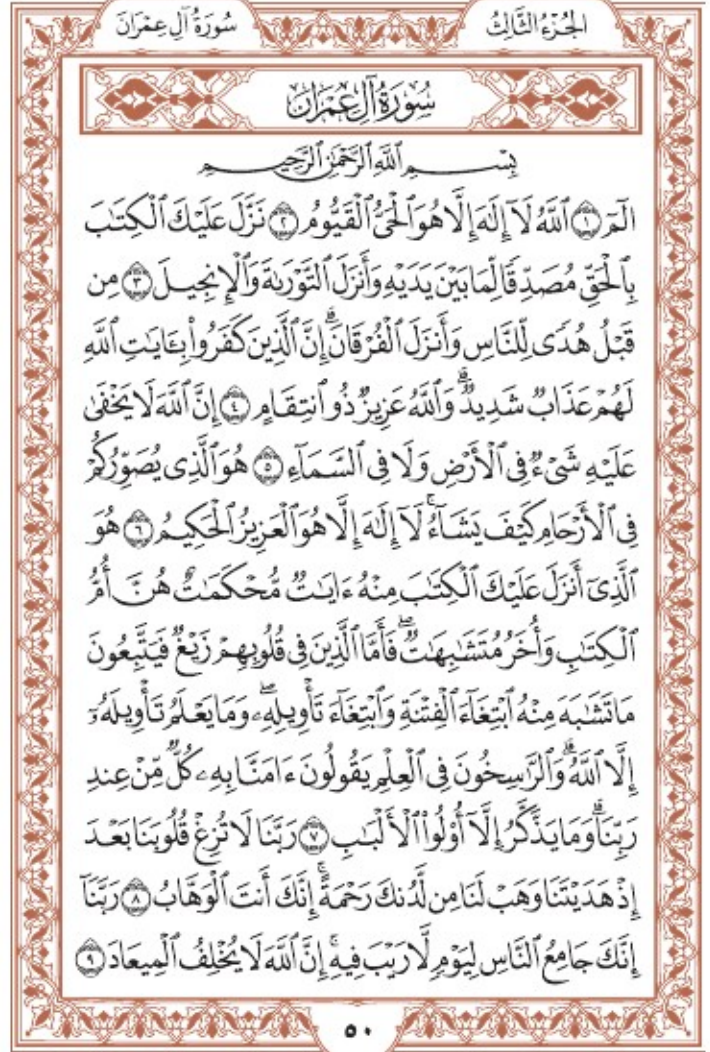 الجُزْءُ الثَّالِثُ
سُورَةُ آلِ عِمْرَانَ
سُورَةُ آلِ عِمْرَانَ
بِسْمِ ٱللَّهِ ٱلرَّحْمَٰنِ ٱلرَّحِيمِ
الٓمٓ ۝١ ٱللَّهُ لَآ إِلَٰهَ إِلَّا هُوَ ٱلْحَىُّ ٱلْقَيُّومُ ۝٢ نَزَّلَ عَلَيْكَ ٱلْكِتَٰبَ
بِٱلْحَقِّ مُصَدِّقًا لِّمَا بَيْنَ يَدَيْهِ وَأَنزَلَ ٱلتَّوْرَىٰةَ وَٱلْإِنجِيلَ ۝٣ مِن
قَبْلُ هُدًى لِّلنَّاسِ وَأَنزَلَ ٱلْفُرْقَانَۗ إِنَّ ٱلَّذِينَ كَفَرُوا۟ بِـَٔايَٰتِ ٱللَّهِ
لَهُمْ عَذَابٌ شَدِيدٌۗ وَٱللَّهُ عَزِيزٌ ذُو ٱنتِقَامٍ ۝٤ إِنَّ ٱللَّهَ لَا يَخْفَىٰ
عَلَيْهِ شَىْءٌ فِى ٱلْأَرْضِ وَلَا فِى ٱلسَّمَآءِ ۝٥ هُوَ ٱلَّذِى يُصَوِّرُكُمْ
فِى ٱلْأَرْحَامِ كَيْفَ يَشَآءُۚ لَآ إِلَٰهَ إِلَّا هُوَ ٱلْعَزِيزُ ٱلْحَكِيمُ ۝٦ هُوَ
ٱلَّذِىٓ أَنزَلَ عَلَيْكَ ٱلْكِتَٰبَ مِنْهُ ءَايَٰتٌ مُّحْكَمَٰتٌ هُنَّ أُمُّ
ٱلْكِتَٰبِ وَأُخَرُ مُتَشَٰبِهَٰتٌۖ فَأَمَّا ٱلَّذِينَ فِى قُلُوبِهِمْ زَيْغٌ فَيَتَّبِعُونَ
مَا تَشَٰبَهَ مِنْهُ ٱبْتِغَآءَ ٱلْفِتْنَةِ وَٱبْتِغَآءَ تَأْوِيلِهِۦۖ وَمَا يَعْلَمُ تَأْوِيلَهُۥٓ
إِلَّا ٱللَّهُۗ وَٱلرَّٰسِخُونَ فِى ٱلْعِلْمِ يَقُولُونَ ءَامَنَّا بِهِۦ كُلٌّ مِّنْ عِندِ
رَبِّنَاۗ وَمَا يَذَّكَّرُ إِلَّآ أُو۟لُوا۟ ٱلْأَلْبَٰبِ ۝٧ رَبَّنَا لَا تُزِغْ قُلُوبَنَا بَعْدَ
إِذْ هَدَيْتَنَا وَهَبْ لَنَا مِن لَّدُنكَ رَحْمَةًۚ إِنَّكَ أَنتَ ٱلْوَهَّابُ ۝٨ رَبَّنَآ
إِنَّكَ جَامِعُ ٱلنَّاسِ لِيَوْمٍ لَّا رَيْبَ فِيهِۚ إِنَّ ٱللَّهَ لَا يُخْلِفُ ٱلْمِيعَادَ ۝٩
٥٠